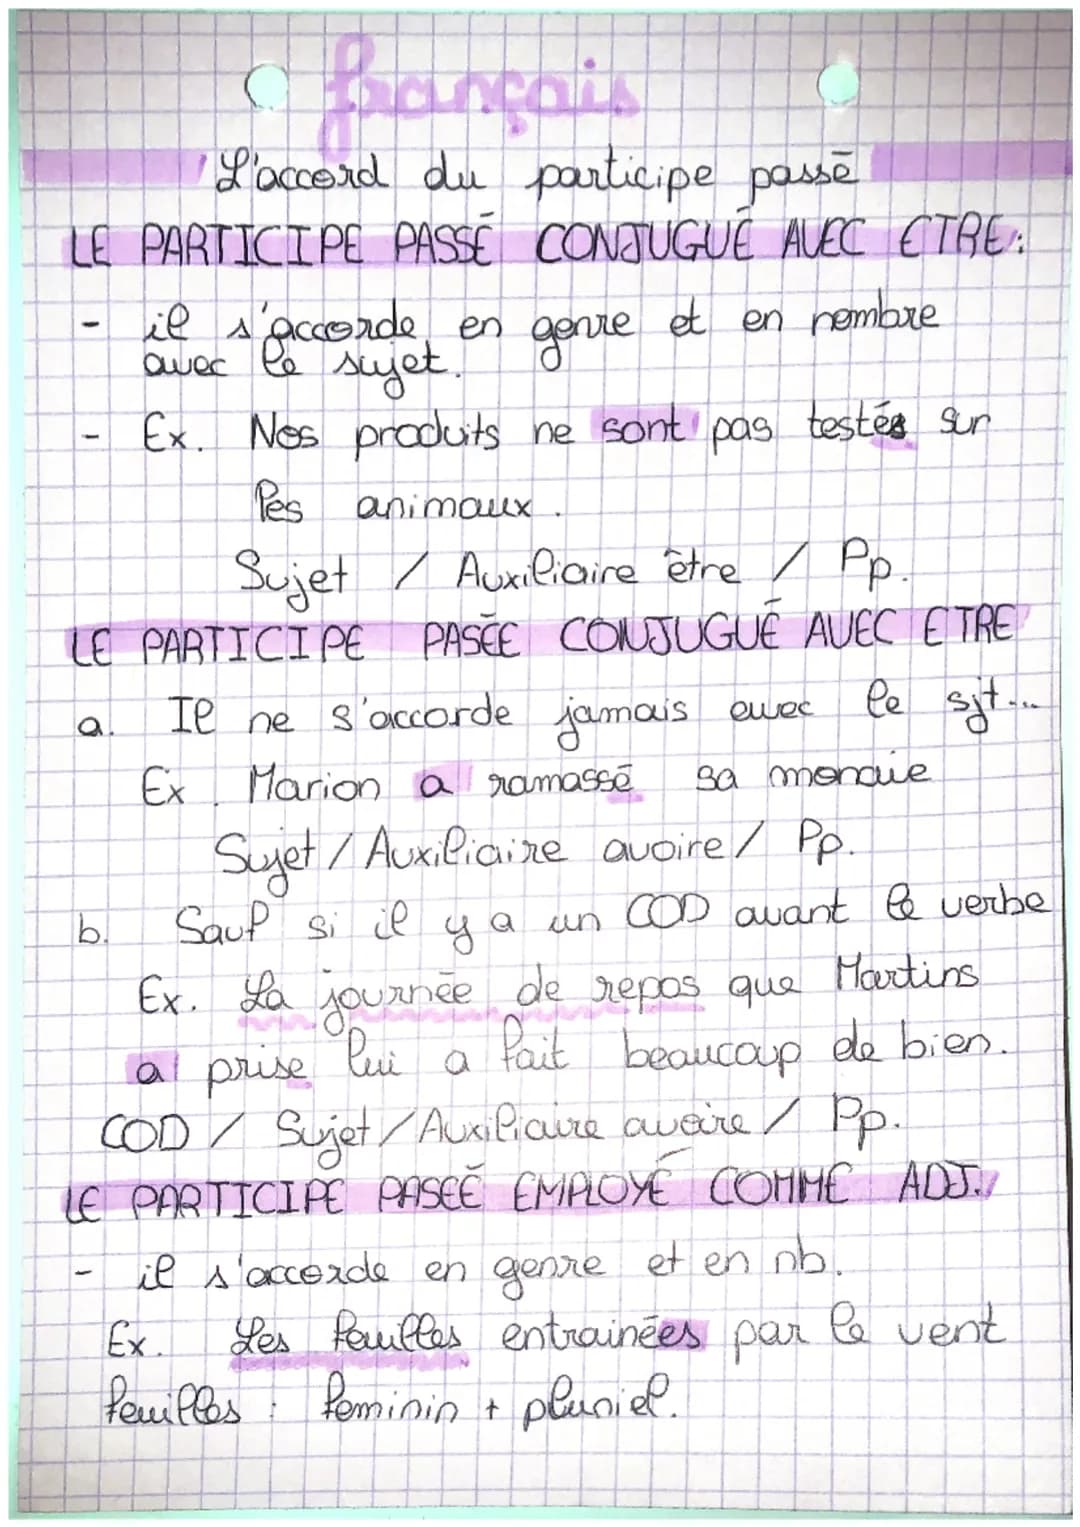 français
L'accord du participe passé
LE PARTICIPE PASSÉ CONJUGUÉ AVEC ETRE:
- il s'accorde en genre et en nombre
avec le sujet.
- Ex. Nos produits ne sont pas testés sur
les animaux.
Sujet / Auxiliaire être / Pp.
LE PARTICIPE PASÉE CONJUGUÉ AVEC ETRE
a. Il ne s'accorde jamais avec le sjt...
Ex. Marion a ramassé sa monaie
Sujet / Auxiliaire avoire / Pp.
b. Sauf si il y a un COD avant le verbe
Ex. La journée de repos que Martins
a prise lui a fait beaucoup de bien.
COD / Sujet / Auxiliaire avoire / Pp.
LE PARTICIPE PASÉE EMPLOYÉ COMME ADJ.
- il s'accorde en genre et en nb.
Ex. Les feuilles entrainées par le vent
feuilles : feminin + pluriel.